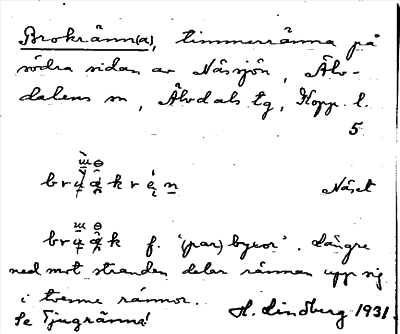 Brokränn(a), timmerränna på
södra sidan av Näsjön, Älv-
dalens sn, Älvdals tg, Kopp. l.
5
Näset
f. "(par)byxor". Längre
ned mot stranden delar rännan upp sig
i tvenne rännor.
Se Tjugränna! H. Lindberg 1931